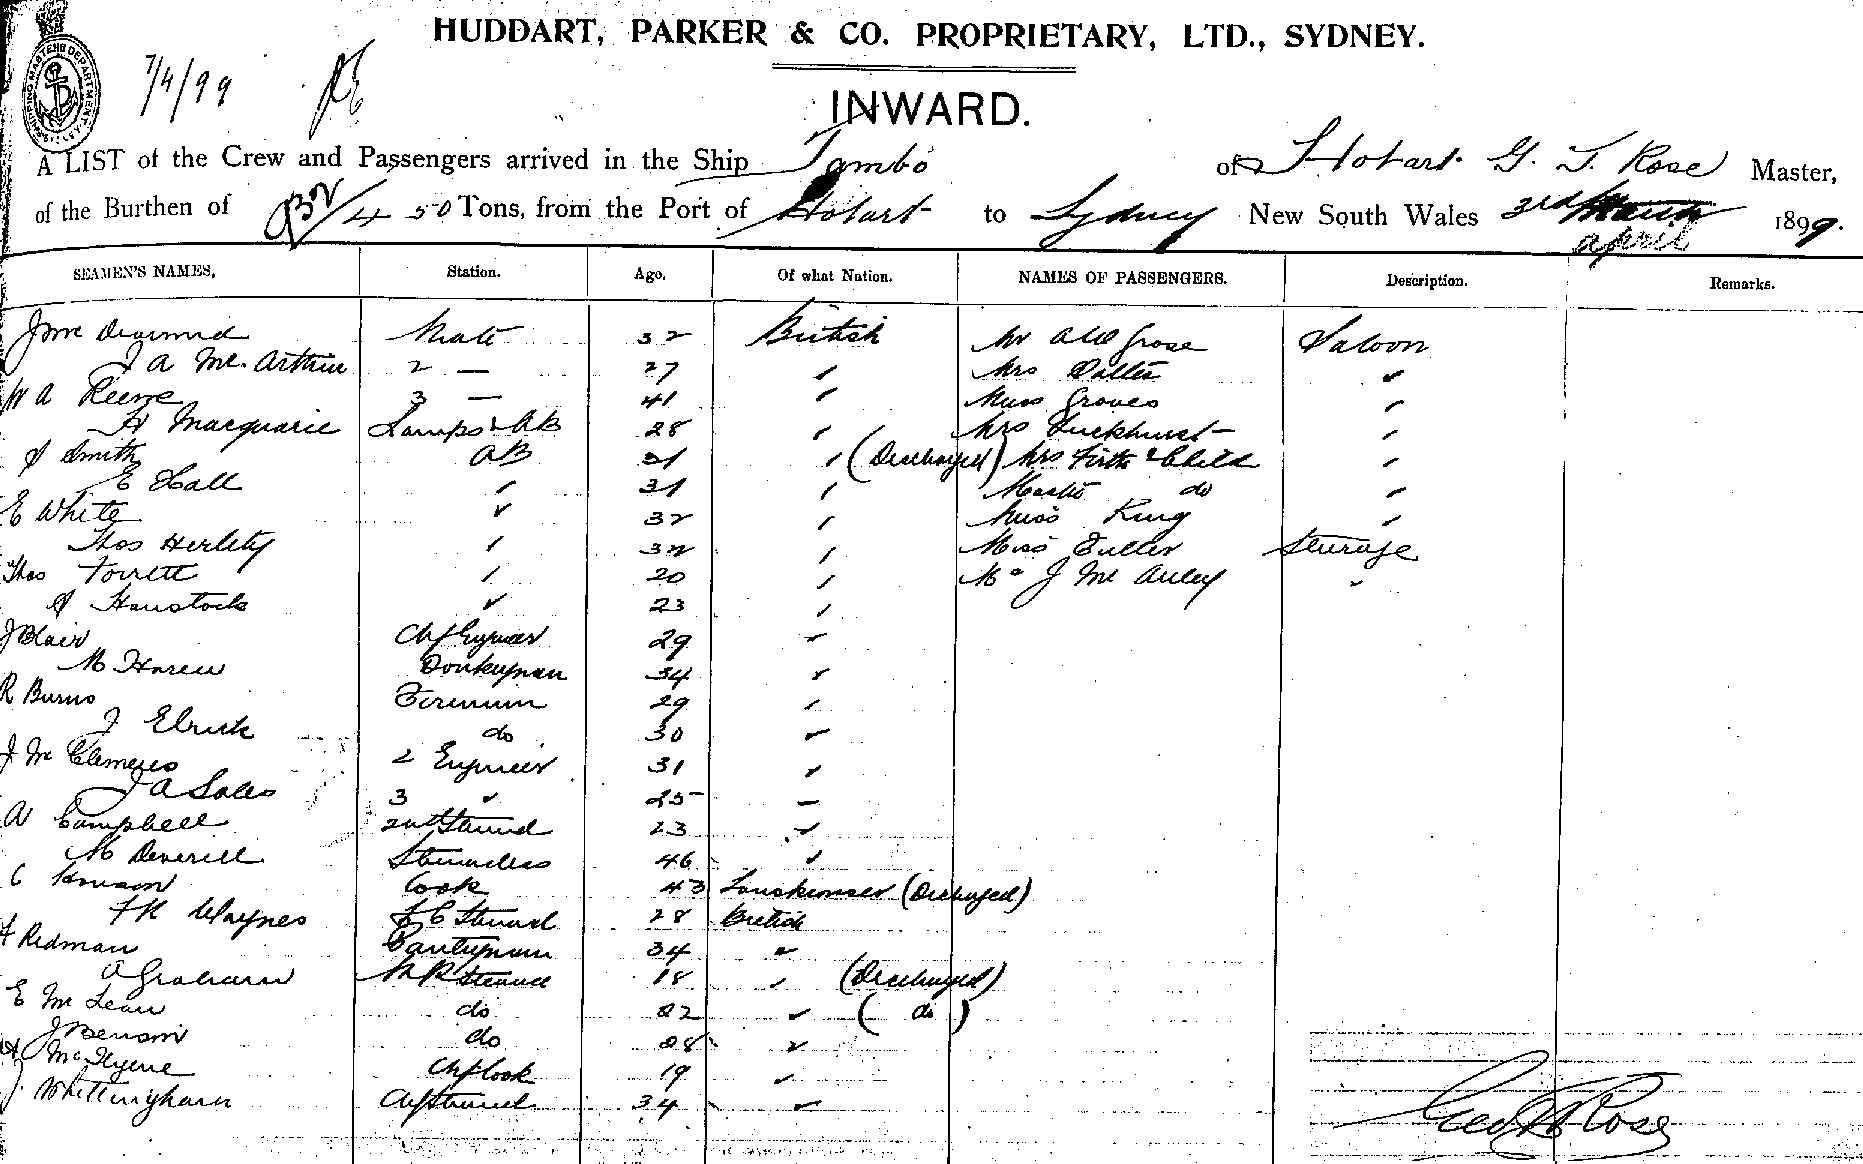 HUDDART, PARKER & CO. PROPRIETARY, LTD., SYDNEY.
7/4/99
INWARD.
A LIST of the Crew and Passengers arrived in the Ship Tambo of Hobart G. T. Rose Master,
of the Burthen of 732/450 Tons, from the Port of Hobart to Sydney New South Wales 3rd March 1899.
april
SEAMEN'S NAMES, Station. Age. Of what Nation. NAMES OF PASSENGERS. Description. Remarks.
J Mc Dearmid Mate 32 British Mr Grose Saloon
J A Mc.Arthur 2 — 27 Mrs
W A Reeve 3 — 41 Miss Groves
H Macquarie Lamps & AB 28 Mrs Luckhurst
J Smith AB 21 (Discharged) Mrs Firth & Child
E Hall 31 Master do
E White 32 Miss King
Thos Herlihy 32 Miss Fuller Steerage
Thos Forrett 20 Mr J Mc Auley
J Hanstock 23
J Blair Chf Engineer 29
M Haren Donkeyman 34
R Burns Fireman 29
J Elrick do 30
J Mc Clements 2 Engineer 31
J A Soles 3 25
A Campbell 2nd Steward 23
M Deverill Stewardess 46
C Cook 43 (Discharged)
F R Waynes F C Steward 28 British
F Redman Pantryman 34
A Graham M R Steward 18 (Discharged)
E Mc Lean do 22 (do)
J Benson do 28
H Chf Cook 19
J Whittingham Chf Steward 34
Geo Rose